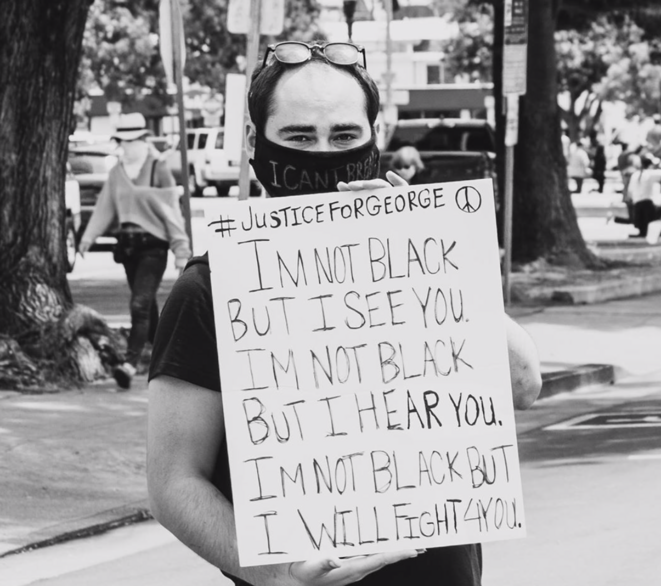 I CAN'T BREA
#JUSTICEFORGEORGE ☮
IM NOT BLACK
BUT I SEE YOU.
IM NOT BLACK
BUT I HEAR YOU.
IM NOT BLACK BUT
I WILL FIGHT 4 YOU.